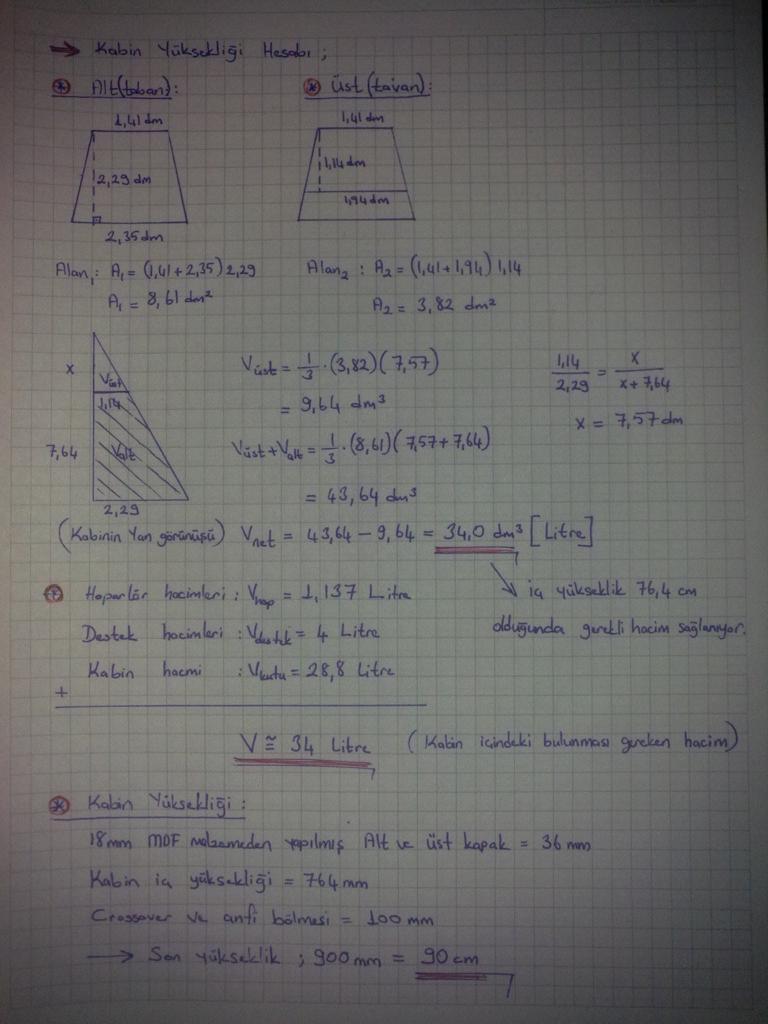 → Kabin Yüksekliği Hesabı ;
* Alt(taban):
* Üst (tavan):
1,41 dm
2,29 dm
2,35 dm
1,41 dm
1,14 dm
1,94 dm
Alan₁ : A₁ = (1,41 + 2,35) 2,29
A₁ = 8,61 dm²
Alan₂ : A₂ = (1,41 + 1,94) 1,14
A₂ = 3,82 dm²
x
Vüst
1,14
7,64
Valt
2,29
(Kabinin Yan görünüşü)
Vüst = 1/3 · (3,82) (7,57)
= 9,64 dm³
Vüst + Valt = 1/3 · (8,61) (7,57 + 7,64)
= 43,64 dm³
1,14/2,29 = x/(x + 7,64)
x = 7,57 dm
Vnet = 43,64 − 9,64 = 34,0 dm³ [Litre]
↘ iç yükseklik 76,4 cm
olduğunda gerekli hacim sağlanıyor.
* Hoparlör hacimleri : Vhop = 1,137 Litre
Destek hacimleri : Vdestek = 4 Litre
Kabin hacmi : Vkutu = 28,8 Litre
+
V ≅ 34 Litre (Kabin içindeki bulunması gereken hacim)
* Kabin Yüksekliği :
18mm MDF malzemeden yapılmış Alt ve üst kapak = 36 mm
Kabin iç yüksekliği = 764 mm
Crossover ve anfi bölmesi = 100 mm
→ Son yükseklik ; 900 mm = 90 cm